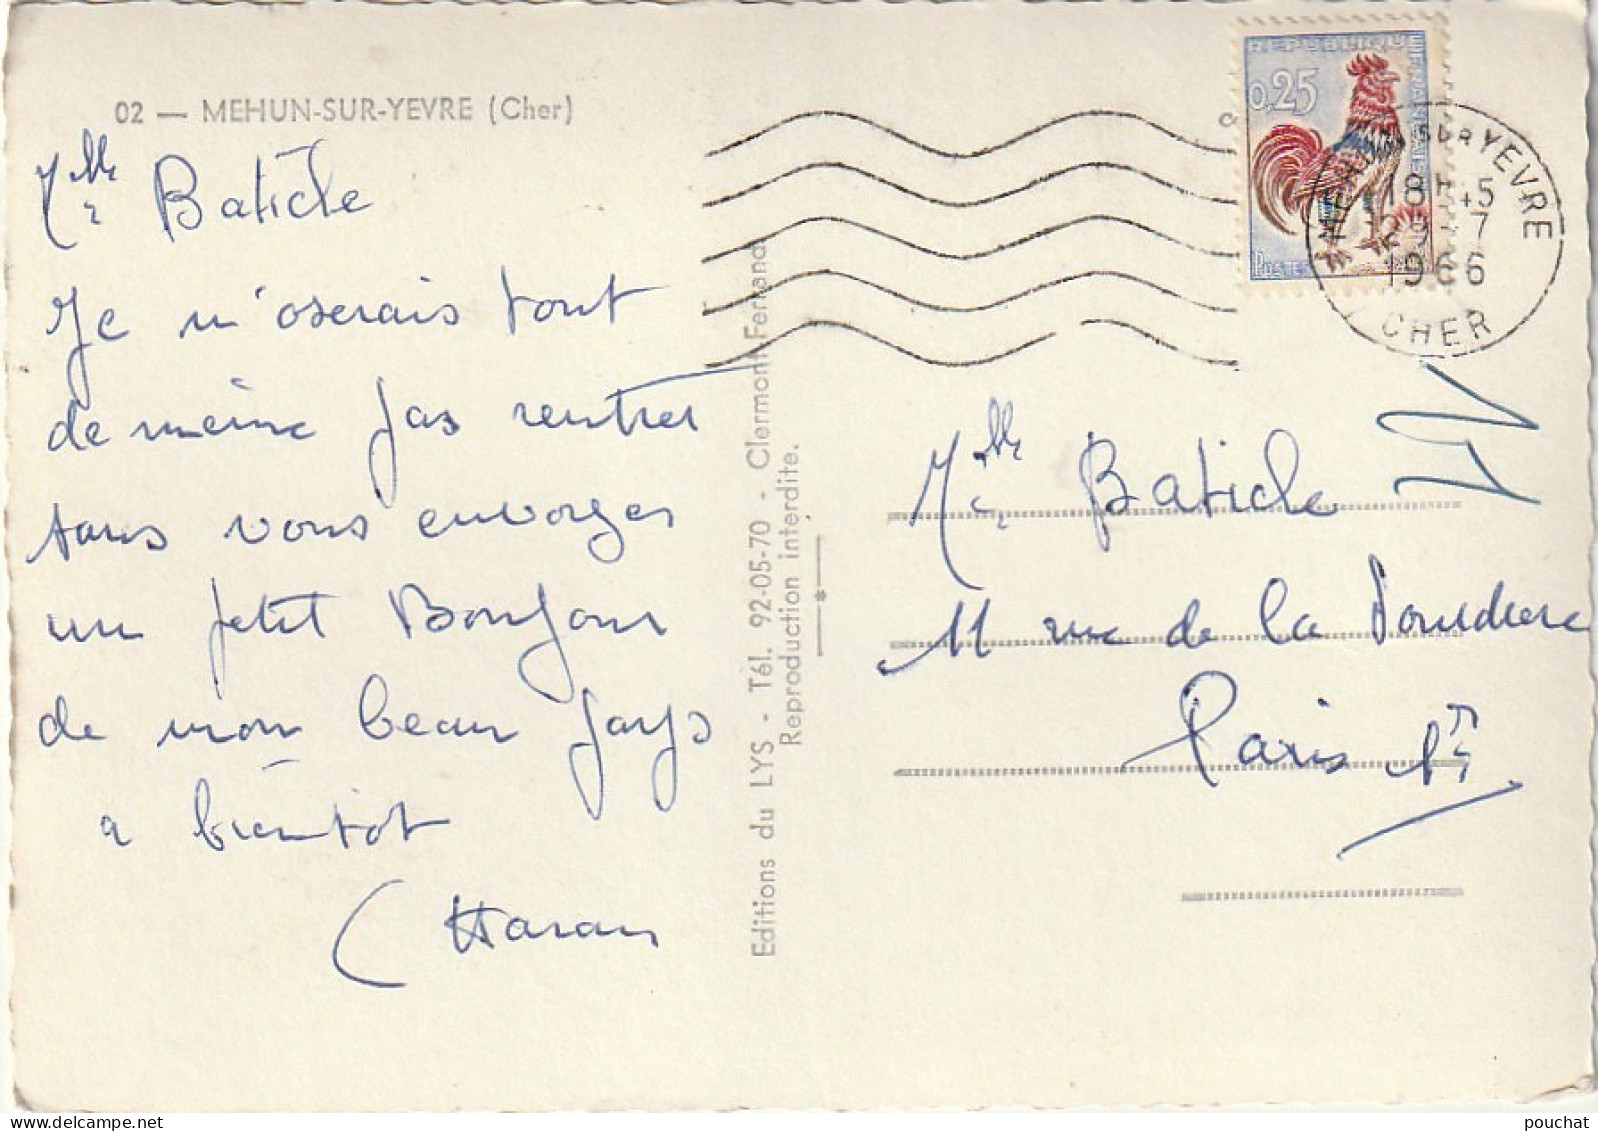 02 — MEHUN-SUR-YEVRE (Cher)
Mlle Baticle
Je n'oserais tout
de meme pas rentrer
sans vous envoyer
un petit Bonjour
de mon beau pays
a bientot
Editions du LYS - Tél. 92-05-70 - Clermont-Ferrand
Reproduction interdite.
REPUBLIQUE FRANCAISE
0,25
POSTES
MEHUN SUR YEVRE
18H45
7
1966
CHER
Mlle Baticle
11 rue de la Poudriere
Paris
pouchat